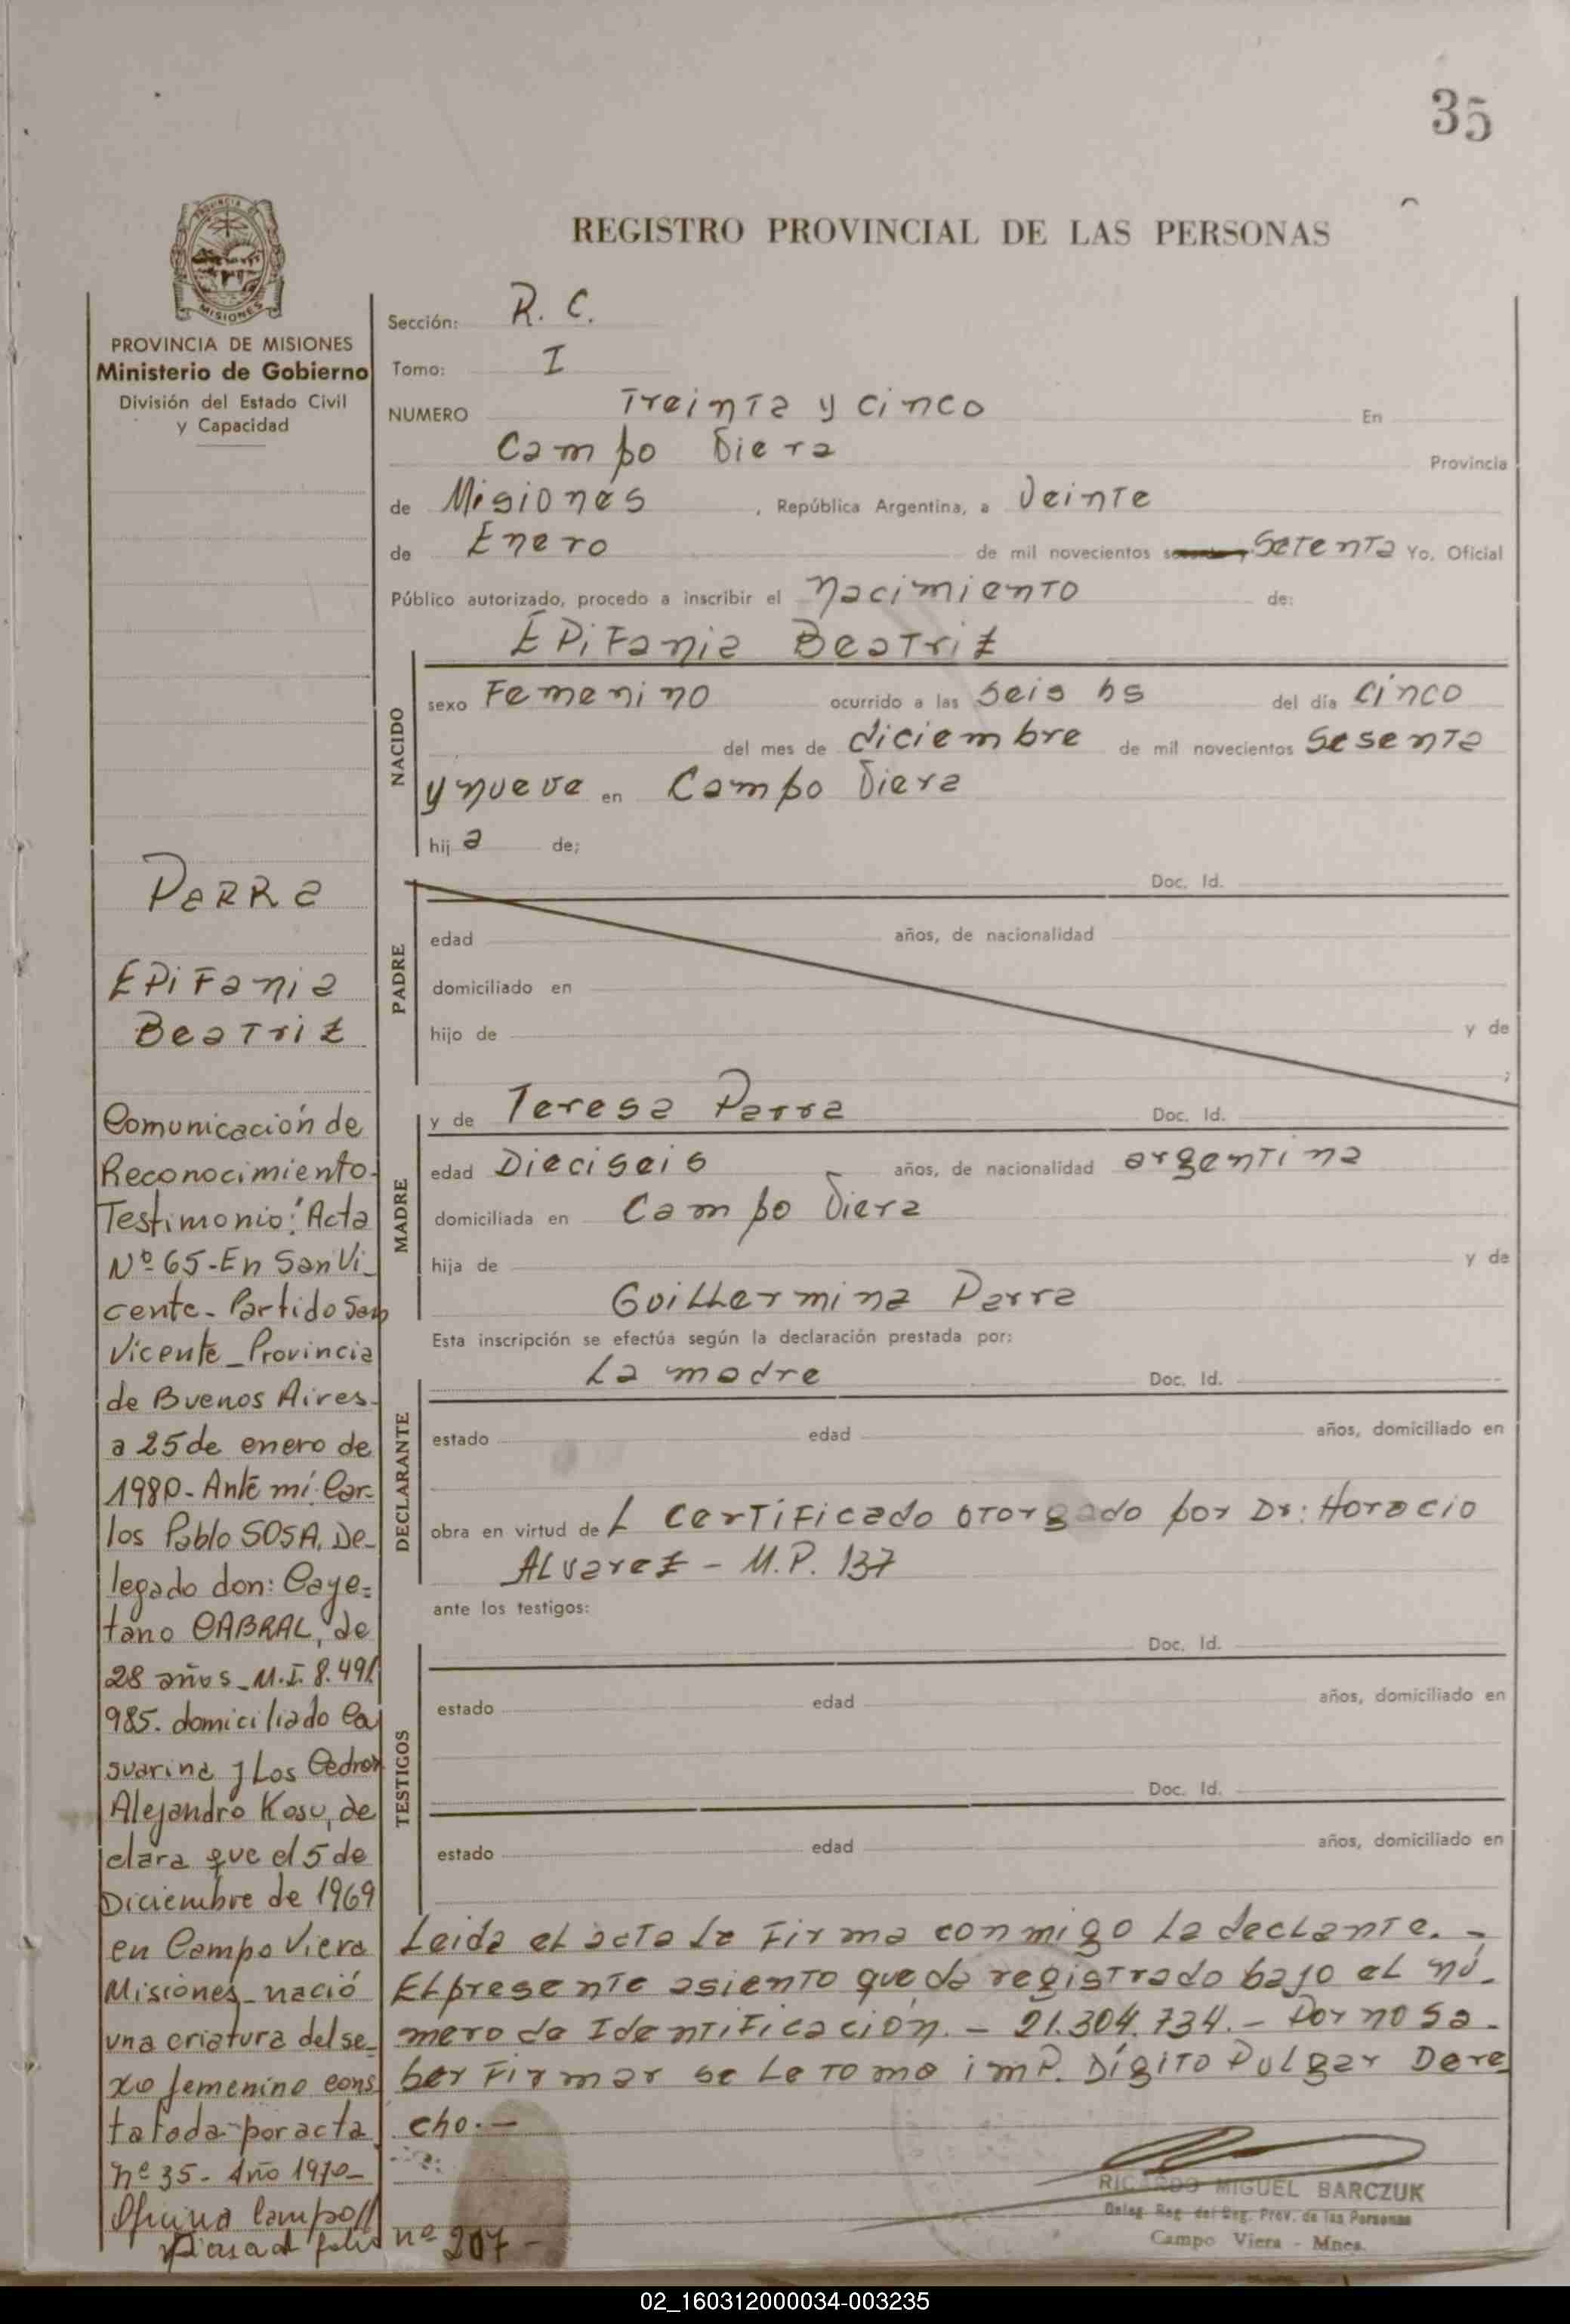 35
REGISTRO PROVINCIAL DE LAS PERSONAS
MISIONES
PROVINCIA DE MISIONES
Ministerio de Gobierno
División del Estado Civil
y Capacidad
Sección: R. C.
Tomo: I
NUMERO Treinta y cinco En
Campo Viera Provincia
de Misiones, República Argentina, a Veinte
de Enero de mil novecientos setenta Yo, Oficial
Público autorizado, procedo a inscribir el nacimiento de:
EPifania Beatriz
NACIDO
sexo Femenino ocurrido a las seis hs del día cinco
del mes de diciembre de mil novecientos sesenta
y nueve en Campo Viera
hija de;
PADRE
Doc. Id.
edad años, de nacionalidad
domiciliado en
hijo de y de
;
MADRE
y de Teresa Parra Doc. Id.
edad Dieciseis años, de nacionalidad argentina
domiciliada en Campo Viera
hija de y de
Guillermina Parra
Esta inscripción se efectúa según la declaración prestada por:
DECLARANTE
La madre Doc. Id.
estado edad años, domiciliado en
obra en virtud del certificado otorgado por Dr: Horacio
Alvarez - M.P. 137
ante los testigos:
TESTIGOS
Doc. Id.
estado edad años, domiciliado en
Doc. Id.
estado edad años, domiciliado en
Leida el acta la firma conmigo la declante. -
El presente asiento queda registrado bajo el nú-
mero de Identificación. - 21.304.734. - Por no sa-
ber firmar se le toma imp. Dígito Pulgar Dere
cho. -
RICARDO MIGUEL BARCZUK
Deleg. Reg. del Reg. Prov. de las Personas
Campo Viera - Mnes.
PARRA
EPifania
Beatriz
Comunicación de
Reconocimiento-
Testimonio: "Acta
Nº 65-En San Vi-
cente- Partido San
Vicente-Provincia
de Buenos Aires-
a 25 de enero de
1980- Ante mí Car-
los Pablo SOSA, De-
legado don: Caye-
tano CABRAL, de
28 años- M.I. 8.491
985. domiciliado Ca
suarina y Los Cedros
Alejandro Kosu, de
clara que el 5 de
Diciembre de 1969
en Campo Viera
Misiones- nació
una criatura del se-
xo femenino cons
tatada por acta
nº 35- Año 1970-
Oficina Campo
Pasa al folio nº 207 -
02_160312000034-003235